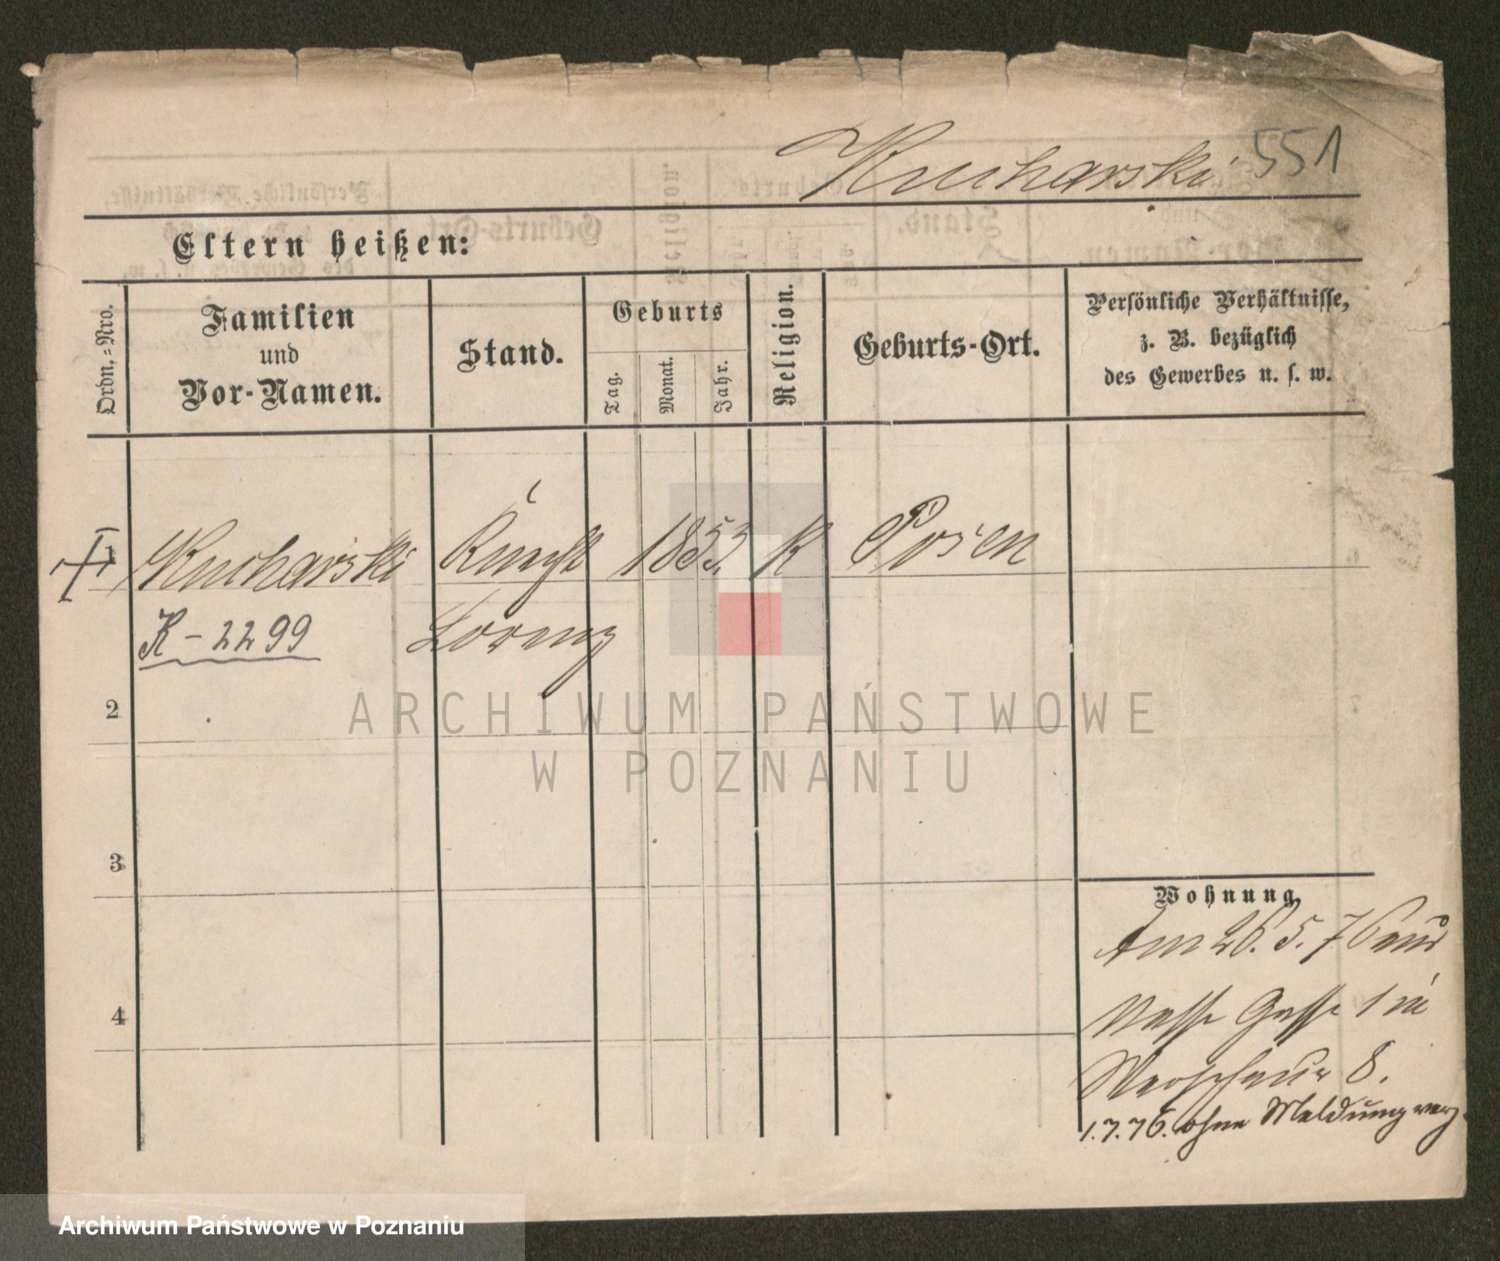 Kucharski 551
Eltern heißen:
Ordn.-Nro.
Familien
und
Vor-Namen.
Stand.
Geburts
Tag.
Monat.
Jahr.
Religion.
Geburts-Ort.
Persönliche Verhältnisse,
z. B. bezüglich
des Gewerbes u. s. w.
1 Kucharski Knecht 1853 K Posen
K-2299 Lorenz
2
3
4
Wohnung
Am 26.5.76 aus
Gasse 1 in
Warschauer 8.
1.7.76. ohne Meldung verz
ARCHIWUM PAŃSTWOWE
W POZNANIU
Archiwum Państwowe w Poznaniu